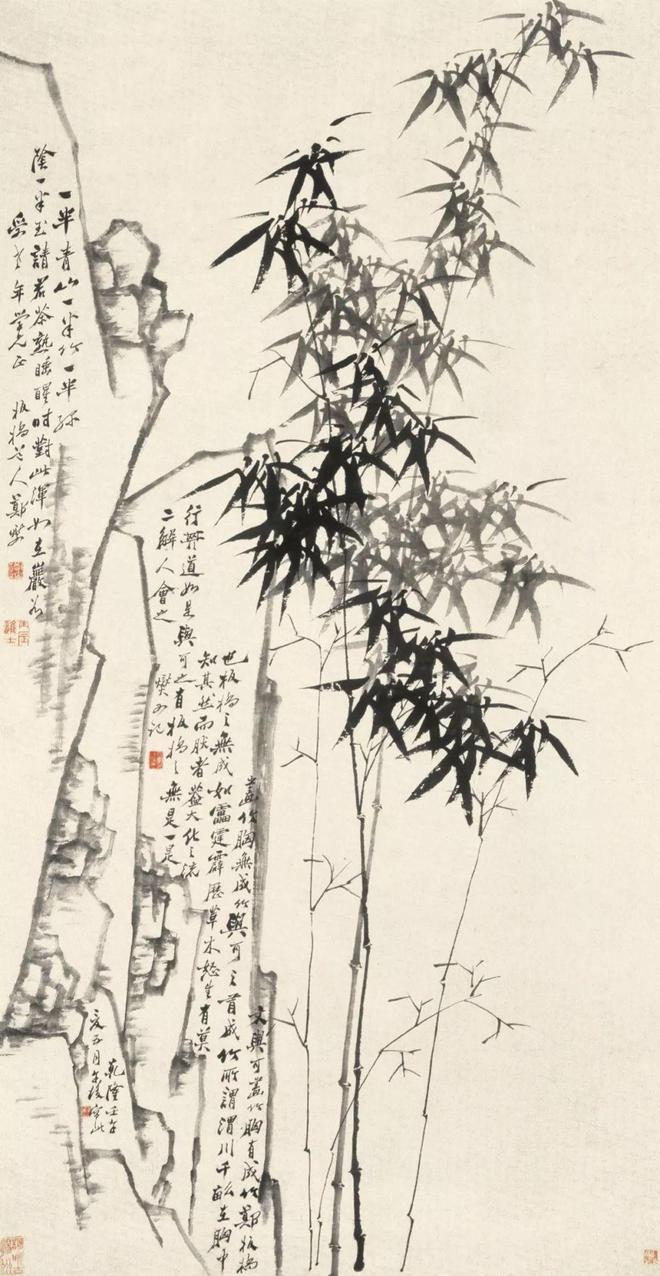 一半青山一半竹一半綠
陰一半玉請君茶熟睡醒時對此渾如在巖谷
老年學兄正 板橋老人鄭燮
文與可畫竹胸有成竹鄭板橋
畫竹胸無成竹與可之有成竹所謂渭川千畝在胸中
也板橋之無成如雷霆霹靂草木怒生有莫
知其然而然者蓋大化之流
行其道如是與可之有板橋之無是一是
二解人會之 燮又記
乾隆壬午
夏五月午後寫此